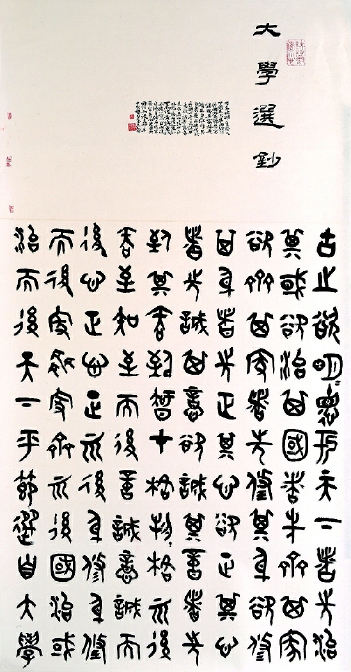 大學選鈔
古之欲明德於天下者先治
其國欲治其國者先齊其家
欲齊其家者先修其身欲修
其身者先正其心欲正其心
者先誠其意欲誠其意者先
致其知致知在格物格而後
知至知至而後意誠意誠而
後心正心正而後身修身修
而後家齊家齊而後國治國
治而後天下平節選自大學